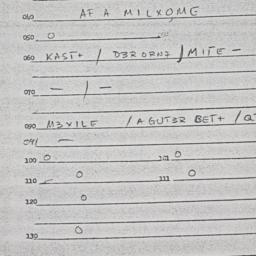 040 AF A MILXOME
050 O
060 KAST+ / D3RORNI / MITE -
070 - / -
090 M3VILE / AGUT3R BET+ /
091 -
100 O 101 O
110 O 111 O
120 O
130 O